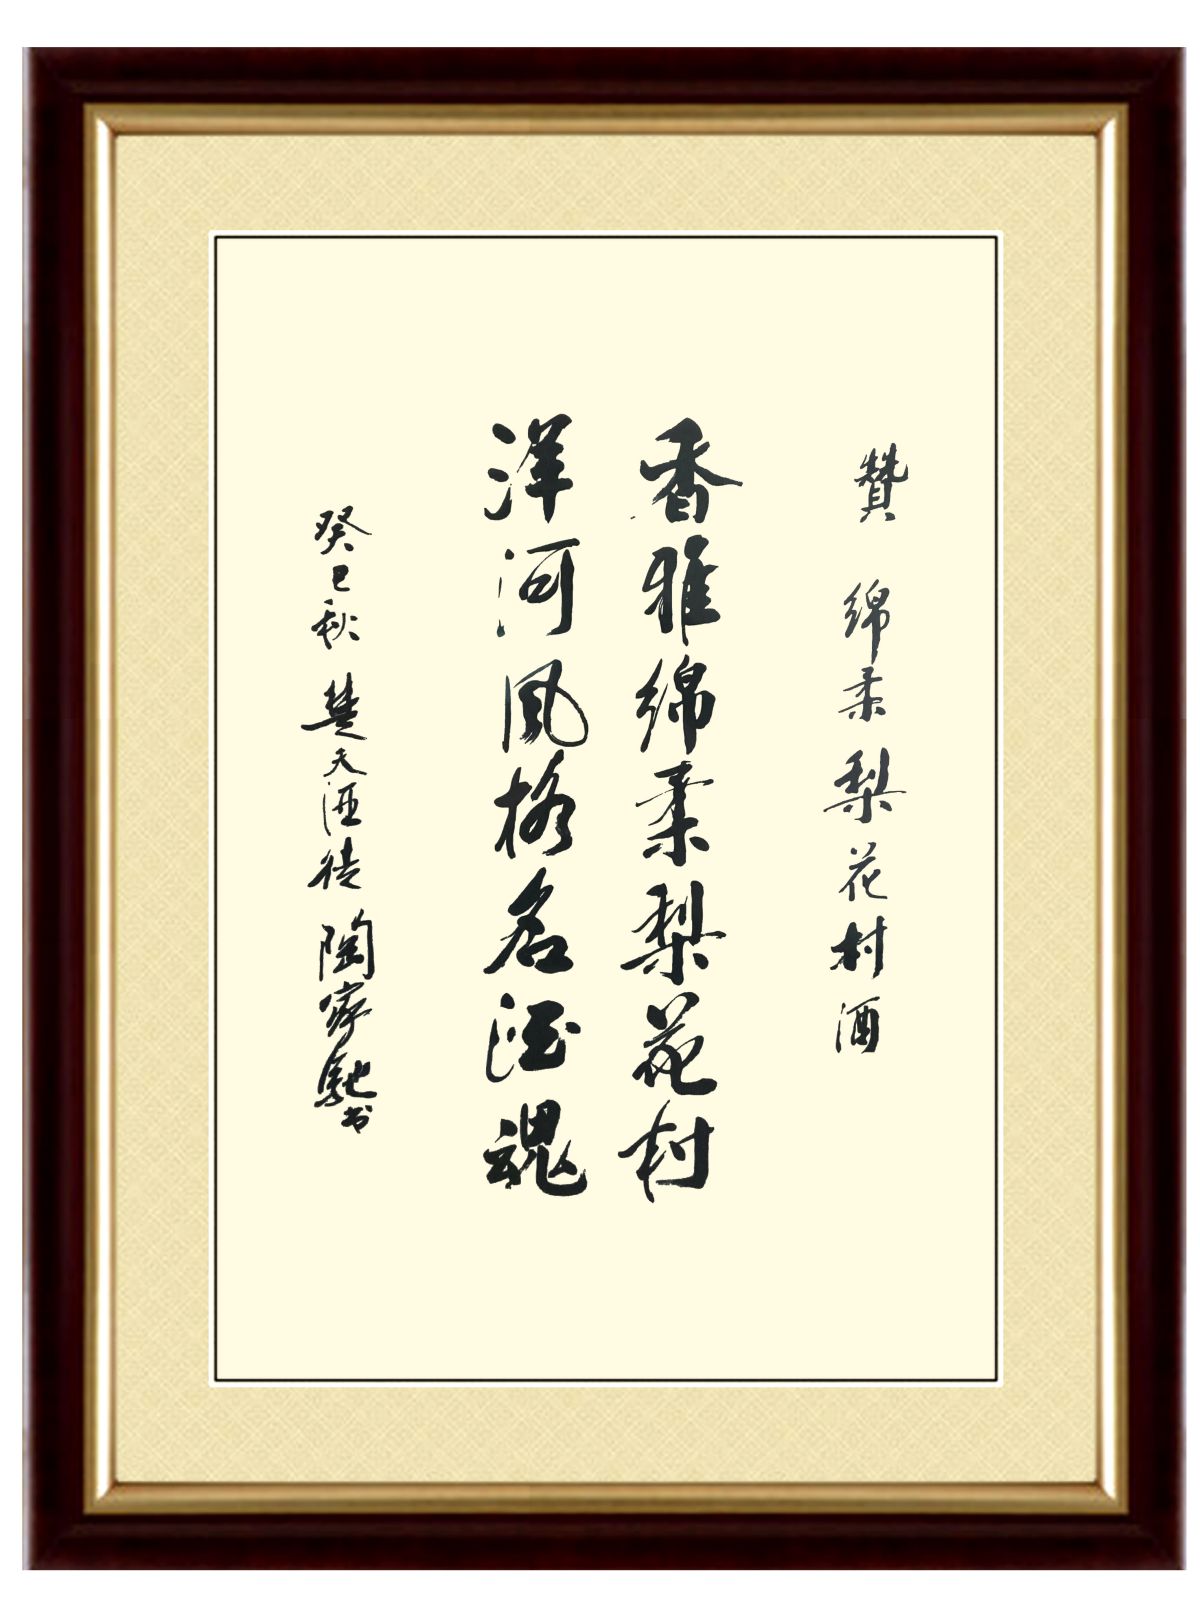 贊 绵柔梨花村酒
香雅绵柔梨花村
洋河风格名酒魂
癸巳秋 楚天酒徒 陶家驰书